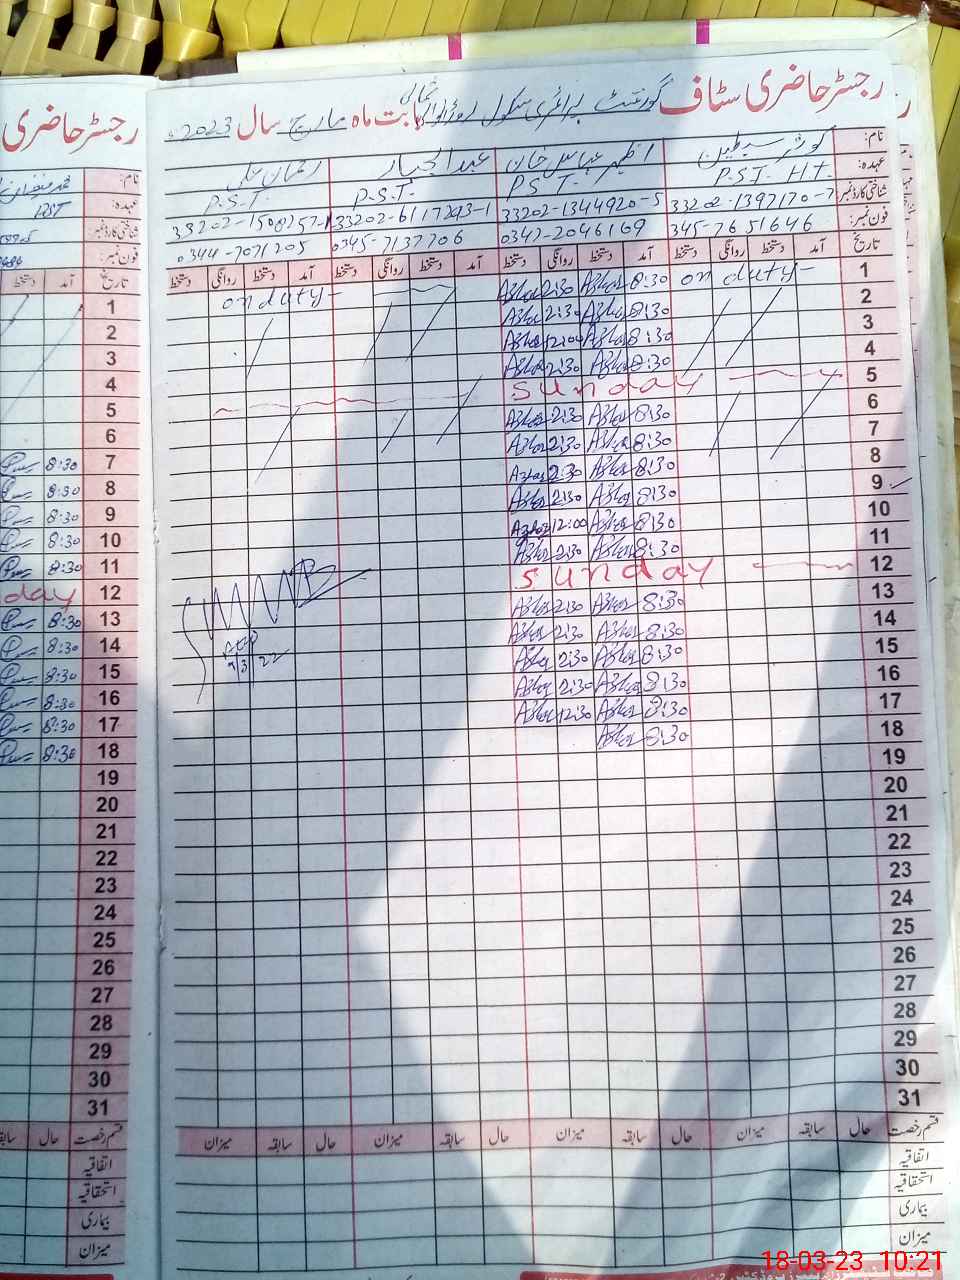 رجسٹر حاضری سٹاف گورنمنٹ پرائمری سکول شمالی بابت ماہ مارچ سال 2023ء
رجسٹر حاضری
نام: اظہر عباس خان عبدالجبار رحمان علی
عہدہ: P.S.T. H.T. P.S.T. P.S.T. P.S.T.
شناختی کارڈ نمبر: 33202-1397170-7 33202-1344920-5 33202-6117293-1
فون نمبر: 345-7651646 0347-2046169 0345-7137706 0344-7071205
تاریخ آمد دستخط روانگی دستخط آمد دستخط روانگی دستخط آمد دستخط روانگی دستخط آمد دستخط روانگی دستخط
1 on duty 8:30 Azhar 2:30 Azhar on duty
2 8:30 Azhar 2:30 Azhar
3 8:30 Azhar 12:00 Azhar
4 8:30 Azhar 2:30 Azhar
5 Sunday
6 8:30 Azhar 2:30 Azhar
7 8:30 Azhar 2:30 Azhar
8 8:30 Azhar 2:30 Azhar
9 8:30 Azhar 2:30 Azhar
10 8:30 Azhar 12:00 Azhar
11 8:30 Azhar 2:30 Azhar
12 Sunday
13 8:30 Azhar 2:30 Azhar
14 8:30 Azhar 2:30 Azhar
15 8:30 Azhar 2:30 Azhar
16 8:30 Azhar 2:30 Azhar
17 8:30 Azhar 12:30 Azhar
18 8:30 Azhar
19
20
21
22
23
24
25
26
27
28
29
30
31
قسم رخصت حال سابقہ میزان حال سابقہ میزان حال سابقہ میزان حال سابقہ میزان
اتفاقیہ
استحقاقیہ
بیماری
میزان
نام:
عہدہ: PST
شناختی کارڈ نمبر:
فون نمبر:
تاریخ آمد دستخط
1
2
3
4
5
6
7 8:30
8 8:30
9 8:30
10 8:30
11 8:30
12 day
13 8:30
14 8:30
15 8:30
16 8:30
17 8:30
18 8:30
19
20
21
22
23
24
25
26
27
28
29
30
31
قسم رخصت حال سابقہ
اتفاقیہ
استحقاقیہ
بیماری
میزان
18-03-23 10:21